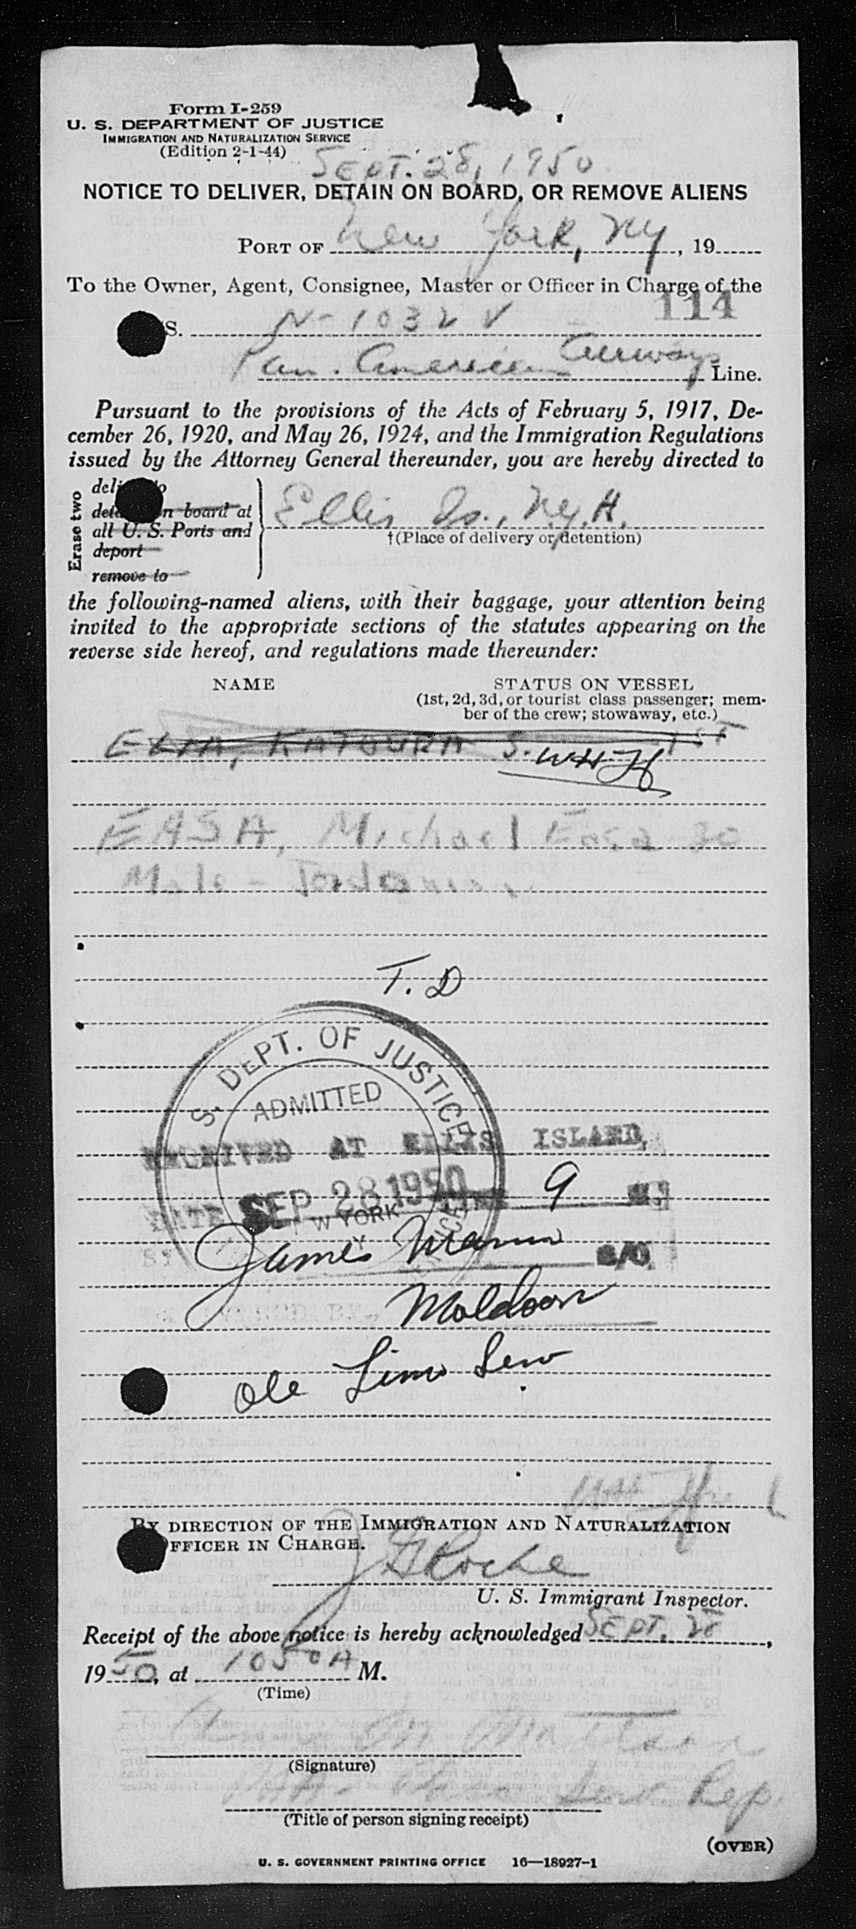 Form I-259
U. S. DEPARTMENT OF JUSTICE
IMMIGRATION AND NATURALIZATION SERVICE
(Edition 2-1-44)
SEPT. 28, 1950
NOTICE TO DELIVER, DETAIN ON BOARD, OR REMOVE ALIENS
PORT OF New York, NY, 19
To the Owner, Agent, Consignee, Master or Officer in Charge of the
114
S. N-1032V
Pan. American Airways Line.
Pursuant to the provisions of the Acts of February 5, 1917, De-
cember 26, 1920, and May 26, 1924, and the Immigration Regulations
issued by the Attorney General thereunder, you are hereby directed to
Erase two
deliver to
detain on board at
all U. S. Ports and
deport
remove to
Ellis Is., N.Y.H.
†(Place of delivery or detention)
the following-named aliens, with their baggage, your attention being
invited to the appropriate sections of the statutes appearing on the
reverse side hereof, and regulations made thereunder:
NAME
STATUS ON VESSEL
(1st, 2d, 3d, or tourist class passenger; mem-
ber of the crew; stowaway, etc.)
ELIA, KATOURA S. 1ST
EASA, Michael Easa 30
Male - Jordanian
T. D
S. DEPT. OF JUSTICE
ADMITTED
RECEIVED AT ELLIS ISLAND,
DATE SEP 28 1950 TIME 9 M.
W YORK
James Mann
S/O
Moldoon
Ole Limo Serv
BY DIRECTION OF THE IMMIGRATION AND NATURALIZATION
OFFICER IN CHARGE.
J Roche
U. S. Immigrant Inspector.
Receipt of the above notice is hereby acknowledged SEPT. 28,
1950, at 1050A M.
(Time)
(Signature)
Serv Rep.
(Title of person signing receipt)
(OVER)
U. S. GOVERNMENT PRINTING OFFICE 16—18927-1